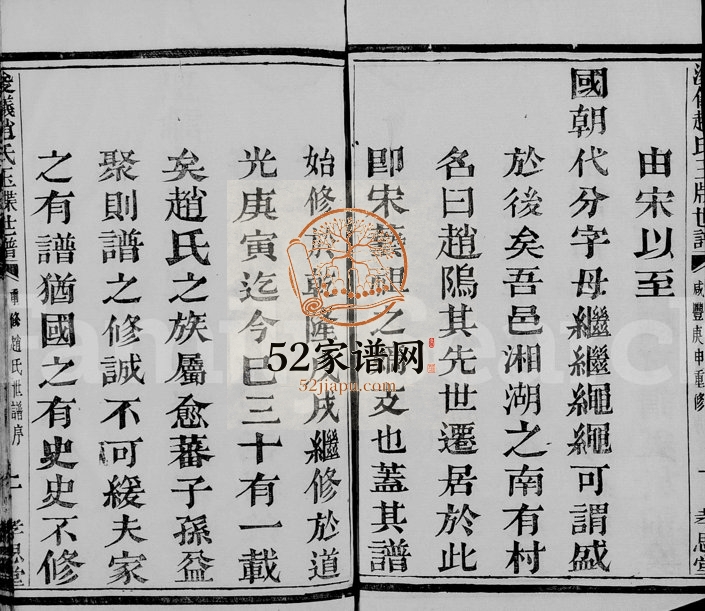 咸豐庚申重修
孝思堂
由宋以至
國朝代分字母繼繼繩繩可謂盛
於後矣吾邑湘湖之南有村
名曰趙隖其先世遷居於此
即宋藝祖之支也蓋其譜
始修於乾隆戌繼修於道
光庚寅迄今已三十有一載
矣趙氏之族屬愈蕃子孫益
聚則譜之修誠不可緩夫家
之有譜猶國之有史史不修
浚儀趙氏玉牒世譜
重修趙氏世譜序
二
孝思堂
52家谱网
52jiapu.com